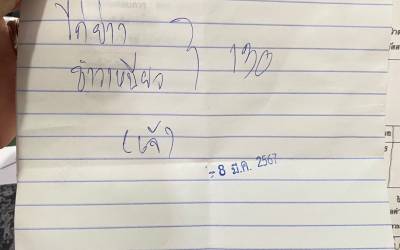 ไก่ย่าง } 130
ข้าวเหนียว
(เจ้)
- 8 มี.ค. 2567